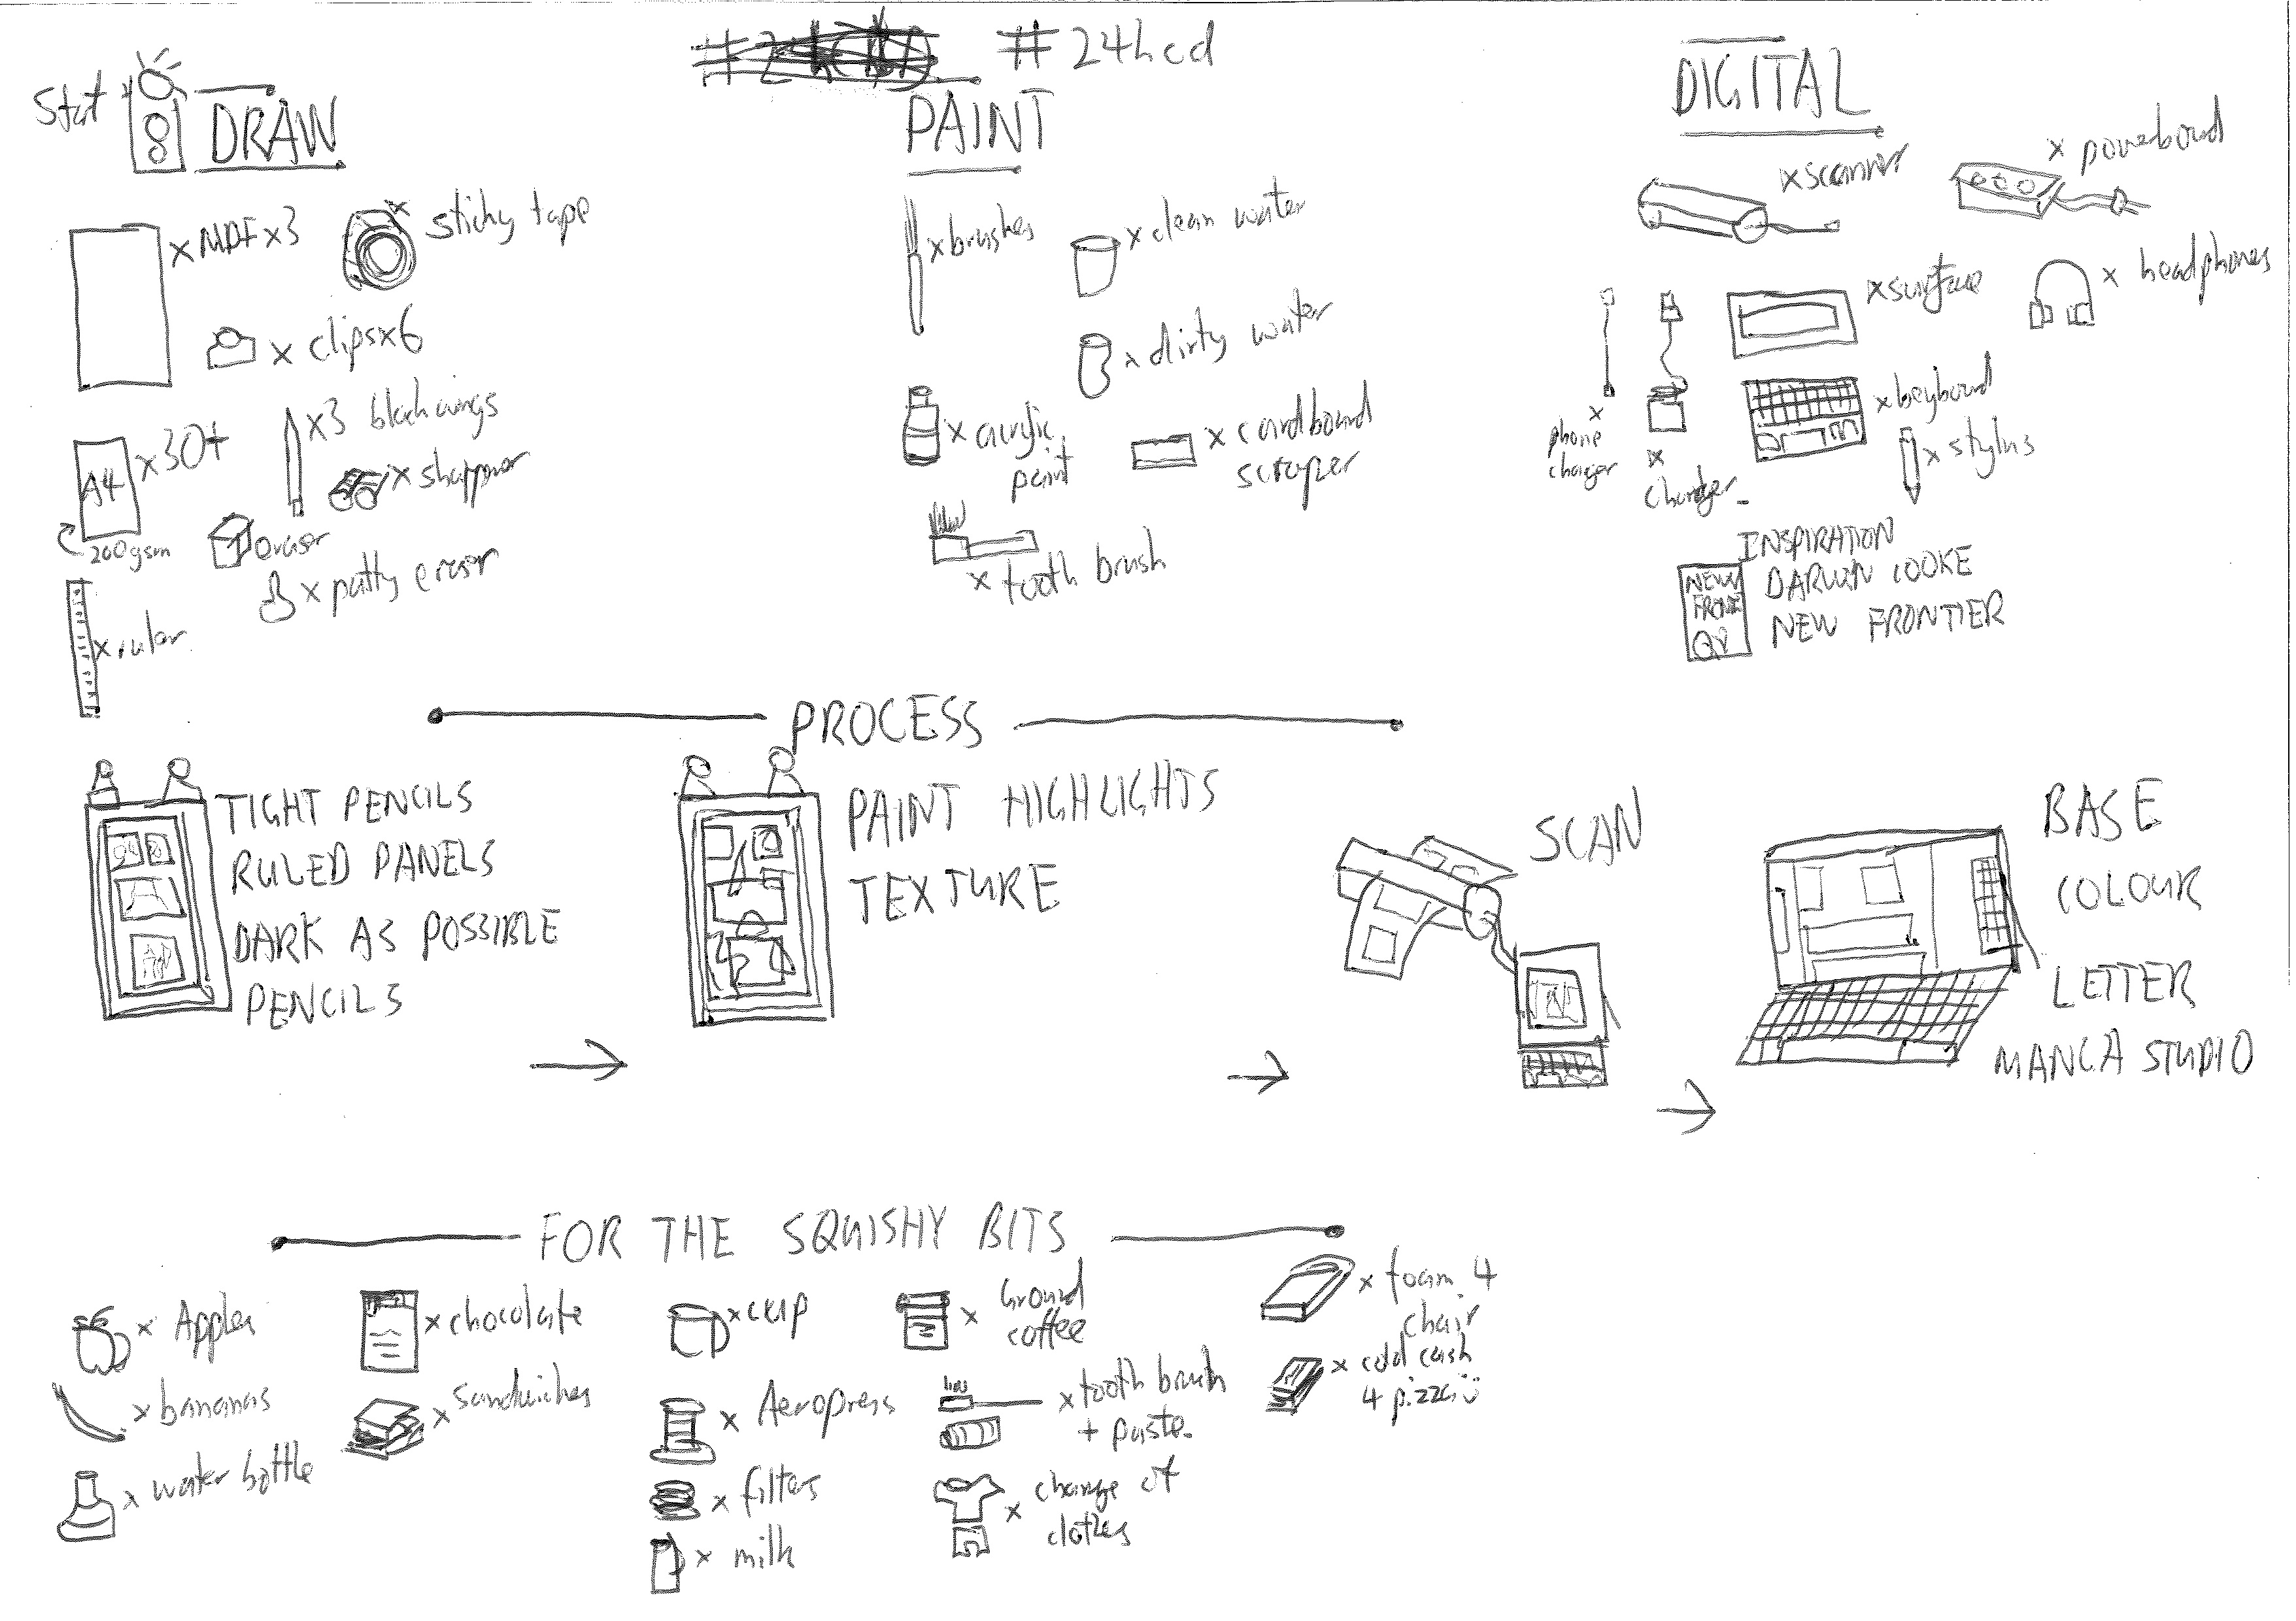 #24hcd
Start
DRAW
x MDF x3
x sticky tape
x clips x6
A4
x30+
200gsm
x3 blackwings
x sharpener
eraser
x putty eraser
x ruler
PAINT
x brushes
x clean water
x dirty water
x acrylic
paint
x cardboard
scraper
x tooth brush
DIGITAL
x scanner
x powerboard
x surface
x headphones
x
phone
charger
x
charger
x keyboard
x stylus
INSPIRATION
DARWIN COOKE
NEW FRONTIER
NEW
PROCESS
TIGHT PENCILS
RULED PANELS
DARK AS POSSIBLE
PENCILS
PAINT HIGHLIGHTS
TEXTURE
SCAN
BASE
COLOUR
LETTER
MANGA STUDIO
FOR THE SQUISHY BITS
x Apples
x bananas
x water bottle
x chocolate
x sandwiches
x cup
x Aeropress
x filters
x milk
x Ground
coffee
x tooth brush
+ paste.
x change of
clothes
x foam 4
chair
x cold cash
4 pizza